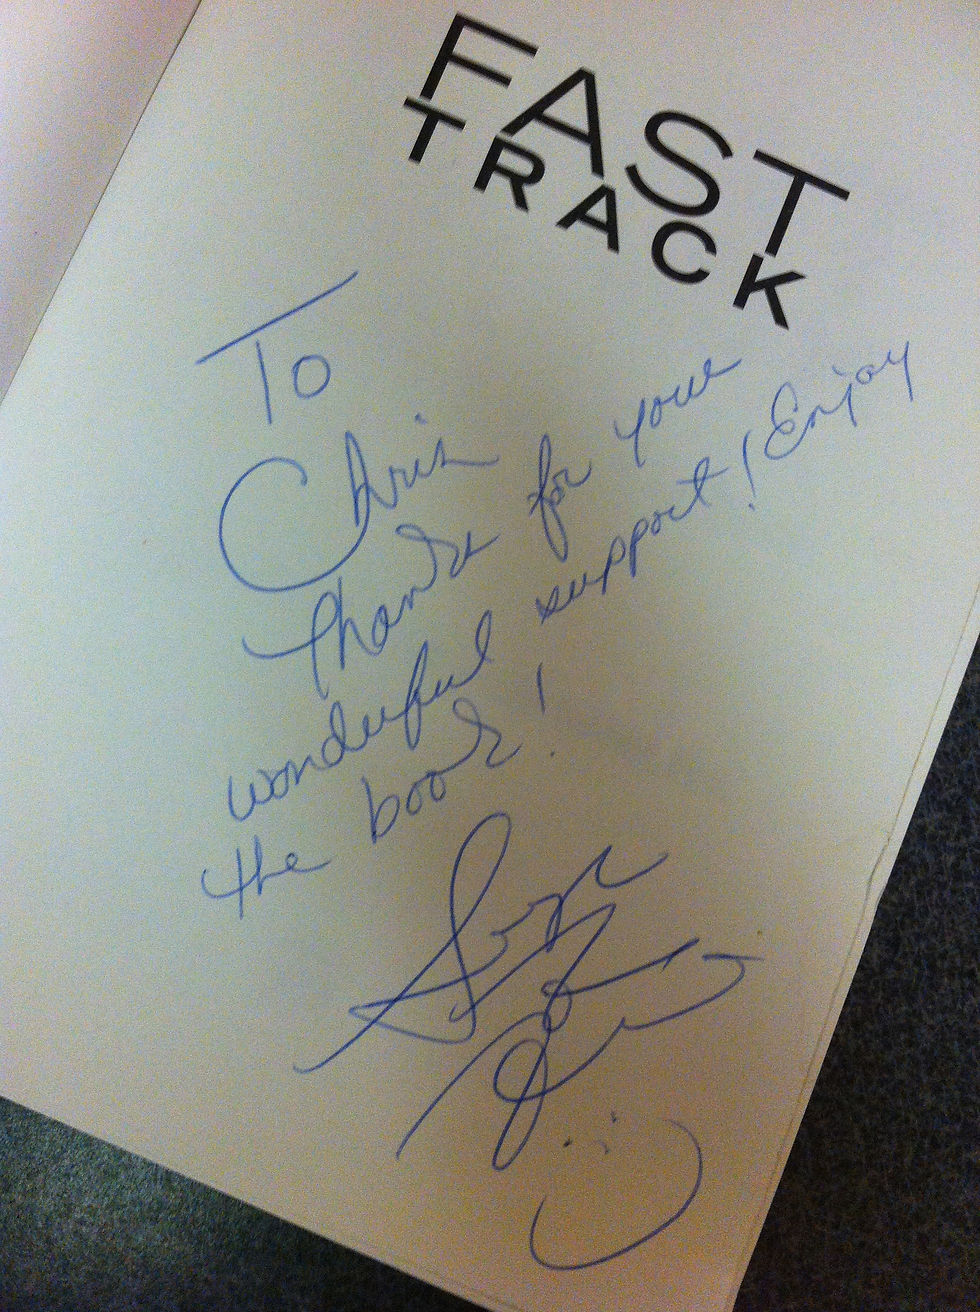 FAST
TRACK
To
Chris
Thanks for your
wonderful support! Enjoy
the book!